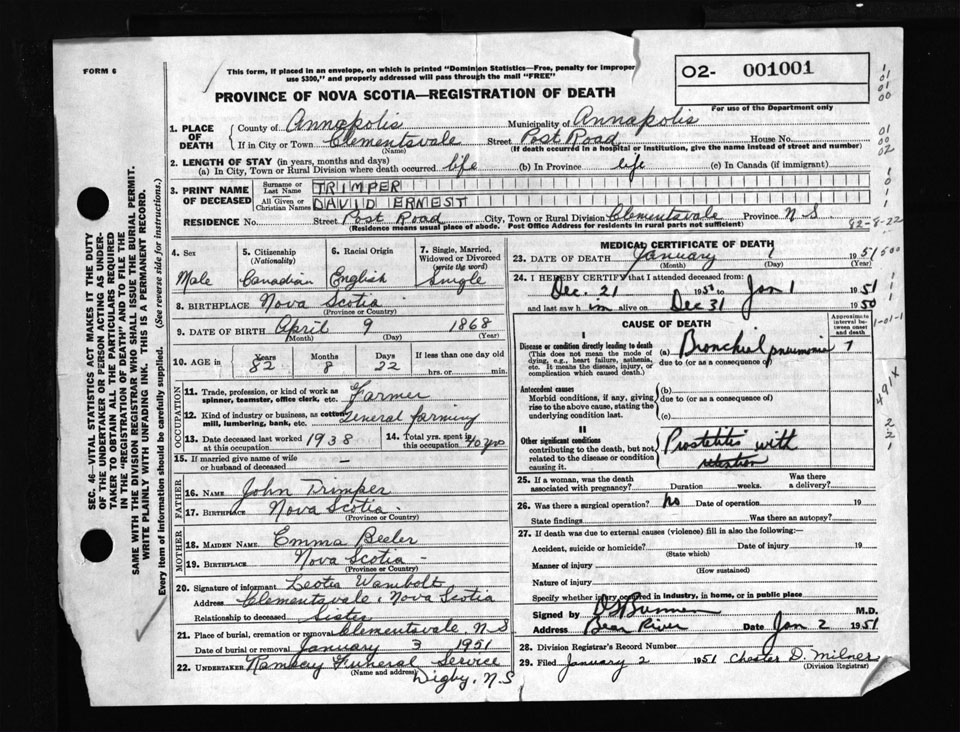 FORM 6
This form, if placed in an envelope, on which is printed "Dominion Statistics—Free, penalty for improper
use $300," and properly addressed will pass through the mail "FREE"
PROVINCE OF NOVA SCOTIA—REGISTRATION OF DEATH
02- 001001
For use of the Department only
1. PLACE OF DEATH
County of Annapolis Municipality of Annapolis
If in City or Town Clementsvale Street Post Road House No.
(Name) (If death occurred in a hospital or institution, give the name instead of street and number)
2. LENGTH OF STAY (in years, months and days)
(a) In City, Town or Rural Division where death occurred life (b) In Province life (c) In Canada (if immigrant)
3. PRINT NAME OF DECEASED
Surname or Last Name TRIMPER
All Given or Christian Names DAVID ERNEST
RESIDENCE No. Street Post Road City, Town or Rural Division Clementsvale Province N S
(Residence means usual place of abode. Post Office Address for residents in rural parts not sufficient)
82-8-22
4. Sex
Male
5. Citizenship (Nationality)
Canadian
6. Racial Origin
English
7. Single, Married, Widowed or Divorced (write the word)
Single
8. BIRTHPLACE Nova Scotia
(Province or Country)
9. DATE OF BIRTH April 9 1868
(Month) (Day) (Year)
10. AGE in Years Months Days If less than one day old
82 8 22 hrs. or min.
OCCUPATION
11. Trade, profession, or kind of work as spinner, teamster, office clerk, etc. Farmer
12. Kind of industry or business, as cotton mill, lumbering, bank, etc. General farming
13. Date deceased last worked at this occupation 1938
14. Total yrs. spent in this occupation 70 yrs
15. If married give name of wife or husband of deceased –
FATHER
16. NAME John Trimper
17. BIRTHPLACE Nova Scotia
(Province or Country)
MOTHER
18. MAIDEN NAME Emma Beeler
19. BIRTHPLACE Nova Scotia
(Province or Country)
20. Signature of informant Leotia Wambolt
Address Clementsvale, Nova Scotia
Relationship to deceased Sister
21. Place of burial, cremation or removal Clementsvale, N.S
Date of burial or removal January 3 1951
22. UNDERTAKER Ramsay Funeral Service
(Name and address) Digby, N.S
MEDICAL CERTIFICATE OF DEATH
23. DATE OF DEATH January 1 1951
(Month) (Day)
24. I HEREBY CERTIFY that I attended deceased from:
Dec. 21 1950 to Jan 1 1951
and last saw him alive on Dec 31 1950
CAUSE OF DEATH
Approximate interval between onset and death
Disease or condition directly leading to death
(This does not mean the mode of dying, e.g., heart failure, asthenia, etc. It means the disease, injury, or complication which caused death.)
(a) Bronchial pneumonia 7
due to (or as a consequence of)
Antecedent causes
Morbid conditions, if any, giving rise to the above cause, stating the underlying condition last.
(b)
due to (or as a consequence of)
(c)
II
Other significant conditions contributing to the death, but not related to the disease or condition causing it.
Prostatitis with
retention
25. If a woman, was the death associated with pregnancy? Duration weeks. Was there a delivery?
26. Was there a surgical operation? No Date of operation 19
State findings Was there an autopsy?
27. If death was due to external causes (violence) fill in also the following:—
Accident, suicide or homicide? Date of injury 19
(State which)
Manner of injury
(How sustained)
Nature of injury
Specify whether injury occurred in industry, in home, or in public place
Signed by M.D.
Address Bear River Date Jan 2 1951
28. Division Registrar's Record Number
29. Filed January 2 1951 Chester D. Milner
(Division Registrar)
SEC. 46—VITAL STATISTICS ACT MAKES IT THE DUTY
OF THE UNDERTAKER OR PERSON ACTING AS UNDERTAKER
TO OBTAIN ALL THE PARTICULARS REQUIRED
IN THE "REGISTRATION OF DEATH" AND TO FILE THE
SAME WITH THE DIVISION REGISTRAR WHO SHALL ISSUE THE BURIAL PERMIT.
WRITE PLAINLY WITH UNFADING INK. THIS IS A PERMANENT RECORD.
Every item of information should be carefully supplied. (See reverse side for instructions.)